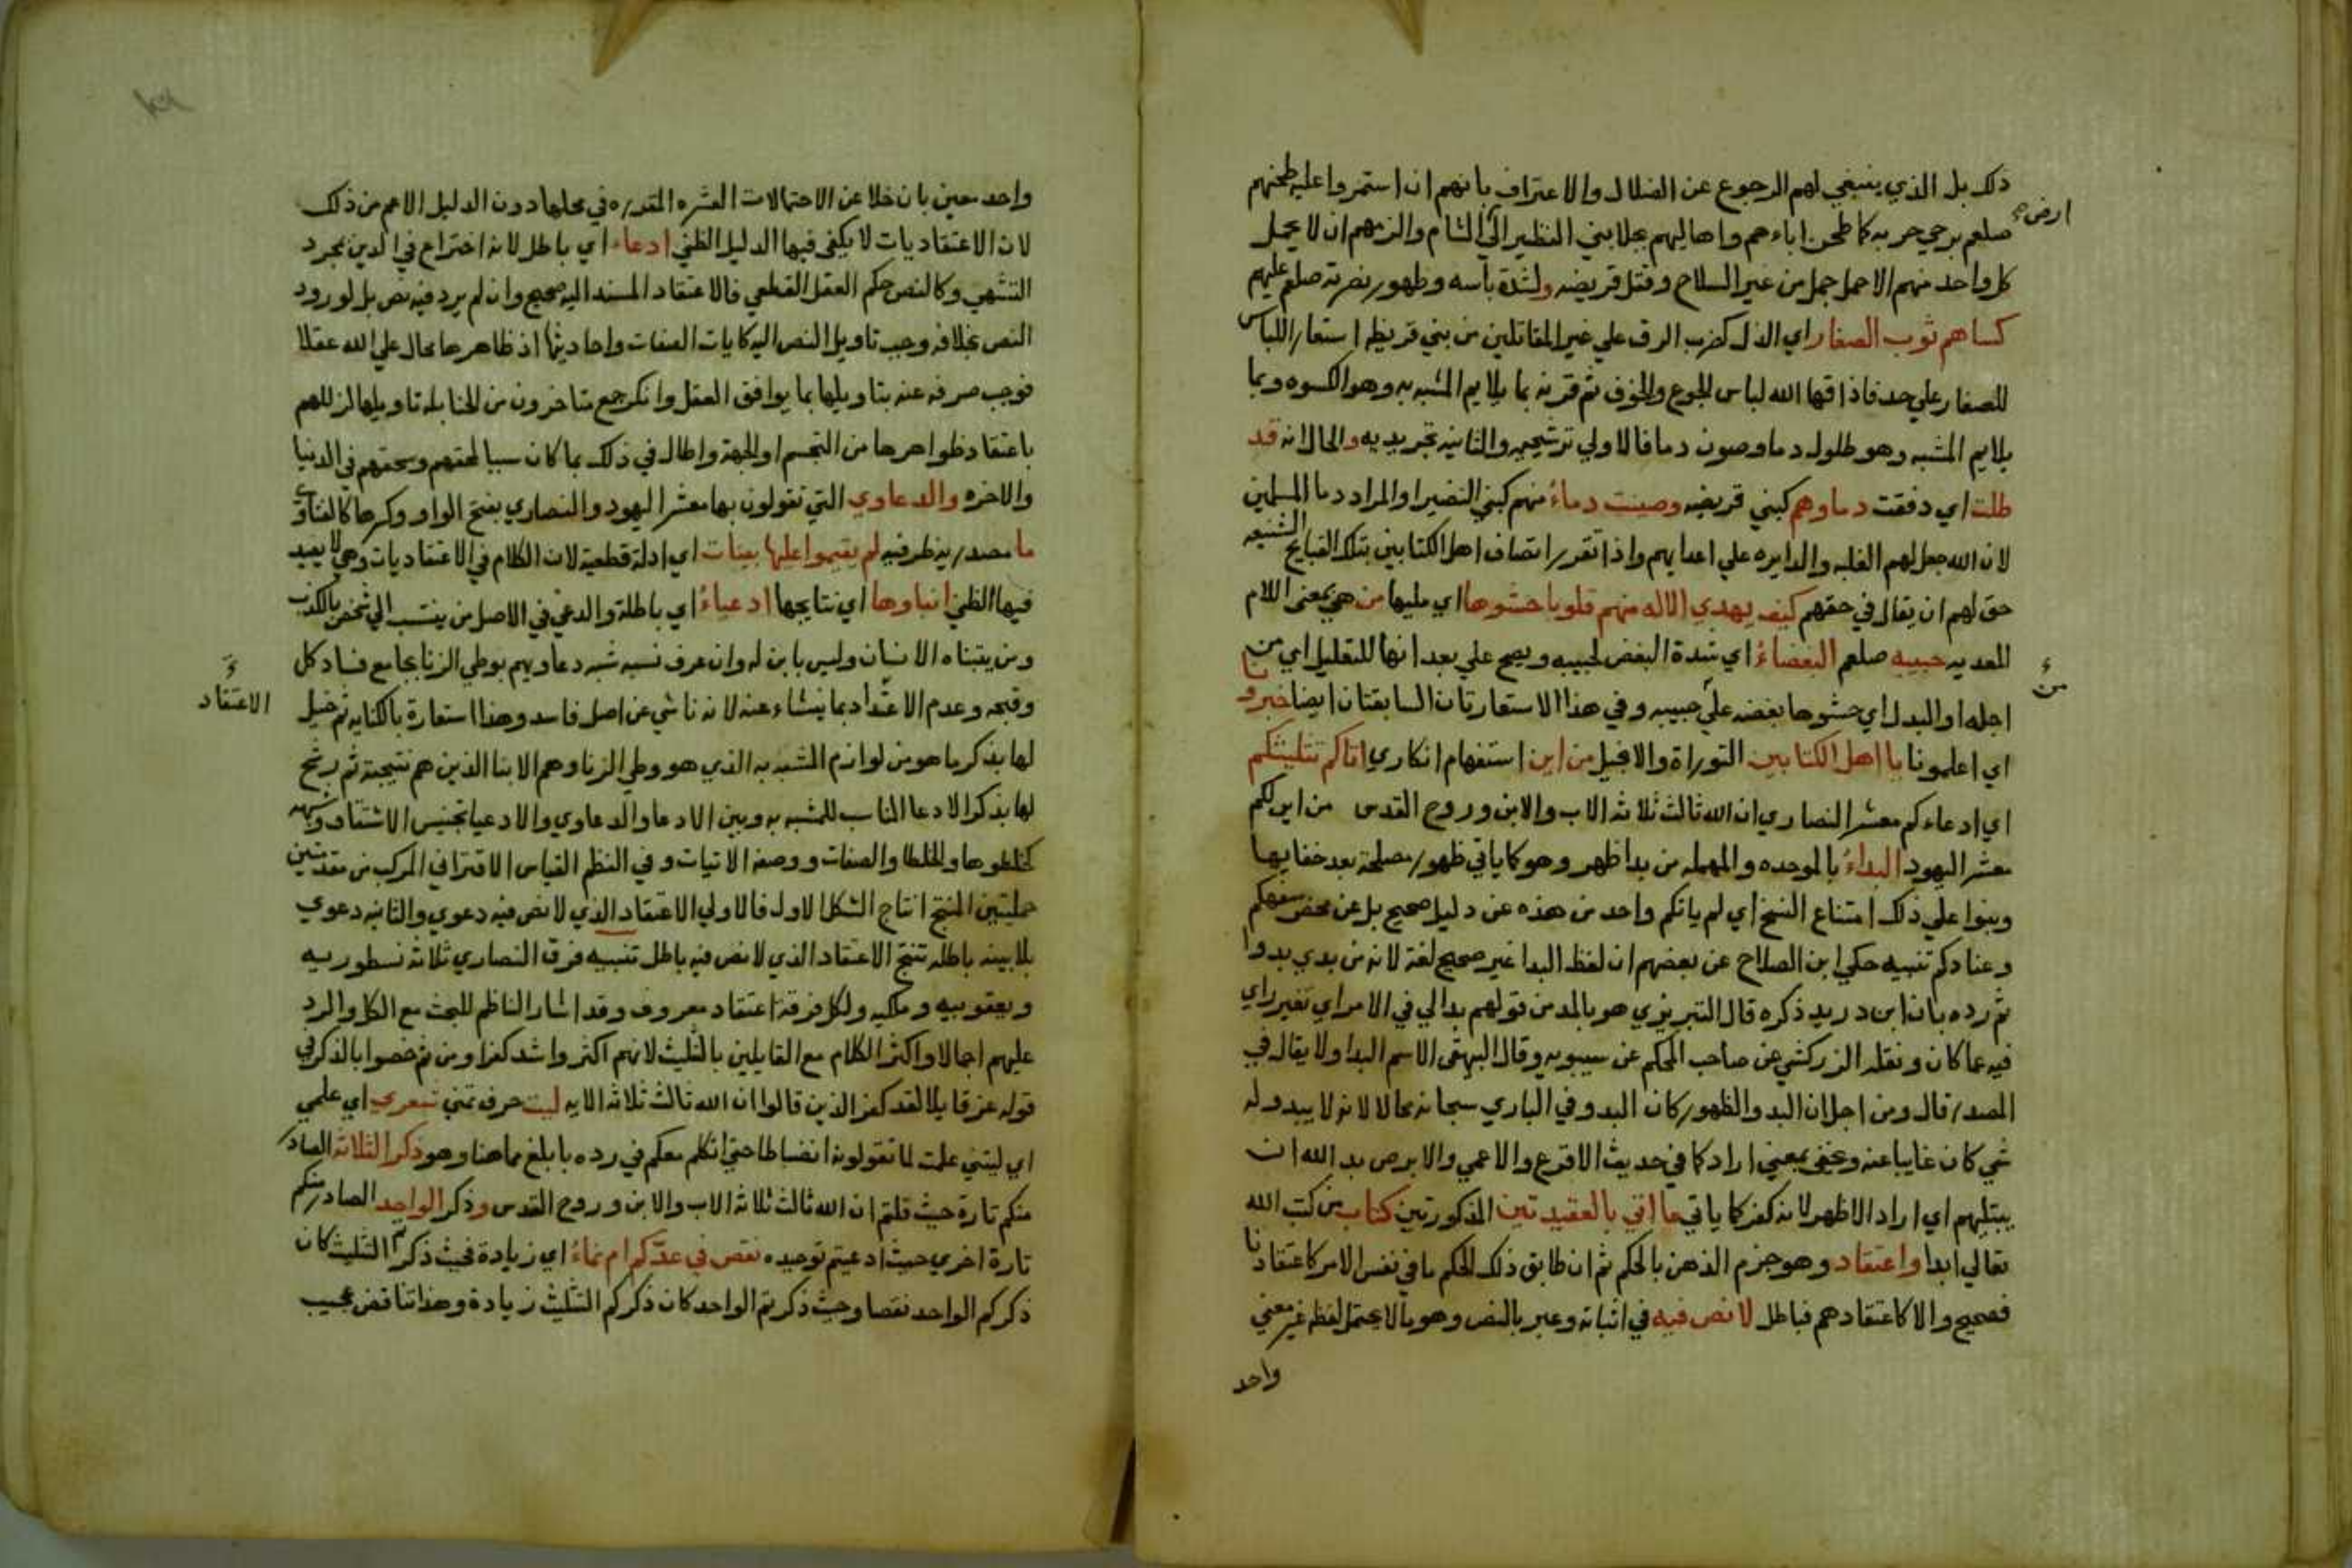 ذلك بل الذي ينبغي لهم الرجوع عن الضلال والاعتراف بانهم ان استمروا عليه طحنهم
ارض
صلعم برحي حربه كما طحن اباءهم واهاليهم بجلا بني النظير الي الشام والزمهم ان لا يحمل
كل واحد منهم الا حمل جمل من غير السلاح وقتل قريضه ولشدة باسه وظهور نصرته صلعم عليهم
كساهم ثوب الصغار اي الذل كضرب الرق علي غير المقاتلين من بني قريظه استعار اللباس
للصغار علي حد فاذاقها الله لباس الجوع والخوف ثم قرنه بما يلايم المشبه به وهو الكسوه وبما
يلايم المشبه وهو طلول دما وصون دما فالاولي ترشيحيه والثانيه تجريديه والحال انه قد
طلت اي دفقت دماوهم كبني قريضه وصينت دماء منهم كبني النضير او المراد دما المسلمين
لان الله جعل لهم الغلبه والدايره علي اعدايهم واذا تقرر اتصاف اهل الكتابين بتلك القبايح الشنيعه
حق لهم ان يقال في حقهم كيف يهدي الاله منهم قلوبا حشوها اي مليها من هي بمعني اللام
المعديه حبيبه صلعم البغضاء اي شدة البغض لحبيبه ويصح علي بعد انها للتقليل اي من
من
اجله او البدل اي حشوها بغضه علي حبيبه وفي هذا الاستعارتان السابقتان ايضا خبرونا
اي اعلمونا يا اهل الكتابين التوراة والانجيل من اين استفهام انكاري اتاكم تثليثكم
اي ادعاءكم معشر النصاري ان الله ثالث ثلاثه الاب والابن وروح القدس من اين لكم
معشر اليهود البداء بالموحده والمهمله من بدا ظهر وهو كما ياتي ظهور مصلحة بعد خفايها
وبنوا علي ذلك امتناع النسخ اي لم ياتكم واحد من هذه عن دليل صحيح بل عن محض سفهكم
وعنادكم تنبيه حكي ابن الصلاح عن بعضهم ان لفظ البدا غير صحيح لغة لانه من بدي يدوا
ثم رده بان ابن دريد ذكره قال التبريزي هو بالمد من قولهم بدا لي في الامر اي تغير راي
فيه عما كان ونقله الزركشي عن صاحب المحكم عن سيبويه وقال البيهقي الاسم البدا ولا يقال في
المصدر قال ومن اجل ان البدو الظهور كان البدو في الباري سبحانه محالا لانه لا يبدو له
شي كان غايبا عنه وعني بمعني اراد كما في حديث الاقرع والاعمي والابرص بدا لله ان
يبتليهم اي اراد الاظهر لانه كفر كما ياتي ما اتي بالعقيدتين المذكورتين كتاب من كتب الله
تعالي ابدا واعتقاد وهو جزم الذهن بالحكم ثم ان طابق ذلك الحكم ما في نفس الامر كاعتقادنا
فصحيح والا كاعتقادهم فباطل لا نص فيه في اثباته وعبر بالنص وهو ما لا يحتمل لفظه غير معني
واحد
واحد معين بان خلا عن الاحتمالات العشره المقدره في محلها دون الدليل الاعم من ذلك
لان الاعتقاديات لا يكفي فيها الدليل الظني ادعاء اي باطل لانه اختراع في الدين بمجرد
التشهي وكالنص حكم العقل القطعي فالاعتقاد المسند اليه صحيح وان لم يرد فيه نص بل لو ورد
النص بخلافه وجب تاويل النص اليه كايات الصفات واحاديثها اذ ظاهرها محال علي الله عقلا
فوجب صرفه عنه بتاويلها بما يوافق العقل وانكر جمع متاخرون من الحنابله تاويلها لزللهم
باعتقاد ظواهرها من التجسم او الجهة واطال في ذلك بما كان سببا لمقتهم وسحقهم في الدنيا
والاخره والدعاوي التي تقولون بها معشر اليهود والنصاري بفتح الواو وكسرها كالفتاوي
ما مصدريه ظرفيه لم يقيموا عليها بينات اي ادلة قطعية لان الكلام في الاعتقاديات وهي لا يفيد
فيها الظني ابناوها اي نتايجها ادعياء اي باطلة والدعي في الاصل من ينتسب الي شخص بالكذب
ومن يتبناه الانسان وليس بابن له وان عرف نسبه شبه دعاويهم بوطي الزنا بجامع فساد كل
وقبحه وعدم الاعتداد بما ينشاء عنه لانه ناشي عن اصل فاسد وهذا استعارة بالكنايه ثم خيل
الاعتقاد
لها بذكر ما هو من لوازم المشبه به الذي هو وطي الزنا وهم الابنا الذين هم نتيجته ثم رشح
لها بذكر الادعا المناسب للمشبه به وبين الادعا والدعاوي والادعيا تجنيس الاشتقاق وشبهه
كخلطوها والخلطا والصفات ووصفه الاتيات وفي النظم القياس الاقتراني المركب من مقدمتين
حمليتين المنتج انتاج الشكل الاول فالاولي الاعتقاد الذي لا نص فيه دعوي والثانيه دعوي
بلا بينه باطله تنتج الاعتقاد الذي لا نص فيه باطل تنبيه فرق النصاري ثلاثة نسطوريه
ويعقوبيه وملكيه ولكل فرقة اعتقاد معروف وقد اشار الناظم للبحث مع الكل والرد
عليهم اجمالا واكثر الكلام مع القايلين بالتثليث لانهم اكثر واشد كفرا ومن ثم خصوا بالذكر في
قوله عز قايلا لقد كفر الذين قالوا ان الله ثالث ثلاثه الايه ليت حرف تمني شعري اي علمي
اي ليتني علمت لما تقولونه انضباطا حتي اتكلم معكم في رده بابلغ مما هنا وهو ذكر الثلاثة الصادر
منكم تارة حيث قلتم ان الله ثالث ثلاثه الاب والابن وروح القدس وذكر الواحد الصادر منكم
تارة اخري حيث ادعيتم توحيده نقص في عدكم ام نماء اي زيادة فحيث ذكرتم التثليث كان
ذكركم الواحد نقصا وحيث ذكرتم الواحد كان ذكركم التثليث زيادة وهذا تناقض عجيب